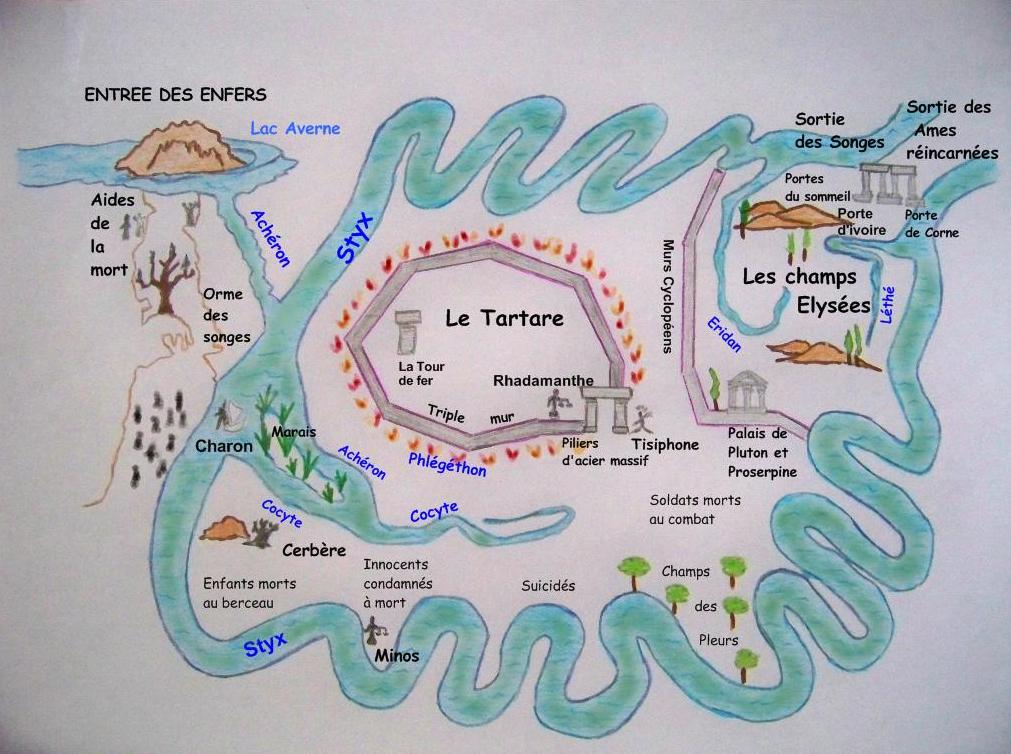 ENTREE DES ENFERS
Lac Averne
Aides
de
la
mort
Achéron
Orme
des
songes
Styx
Charon
Marais
Achéron
Cocyte
Cocyte
Cerbère
Enfants morts
au berceau
Innocents
condamnés
à mort
Styx
Minos
Suicidés
Champs
des
Pleurs
Soldats morts
au combat
Le Tartare
La Tour
de fer
Rhadamanthe
Triple mur
Phlégéthon
Piliers
d'acier massif
Tisiphone
Murs Cyclopéens
Palais de
Pluton et
Proserpine
Les champs
Elysées
Eridan
Léthé
Portes
du sommeil
Porte
d'ivoire
Porte
de Corne
Sortie
des Songes
Sortie des
Ames
réincarnées